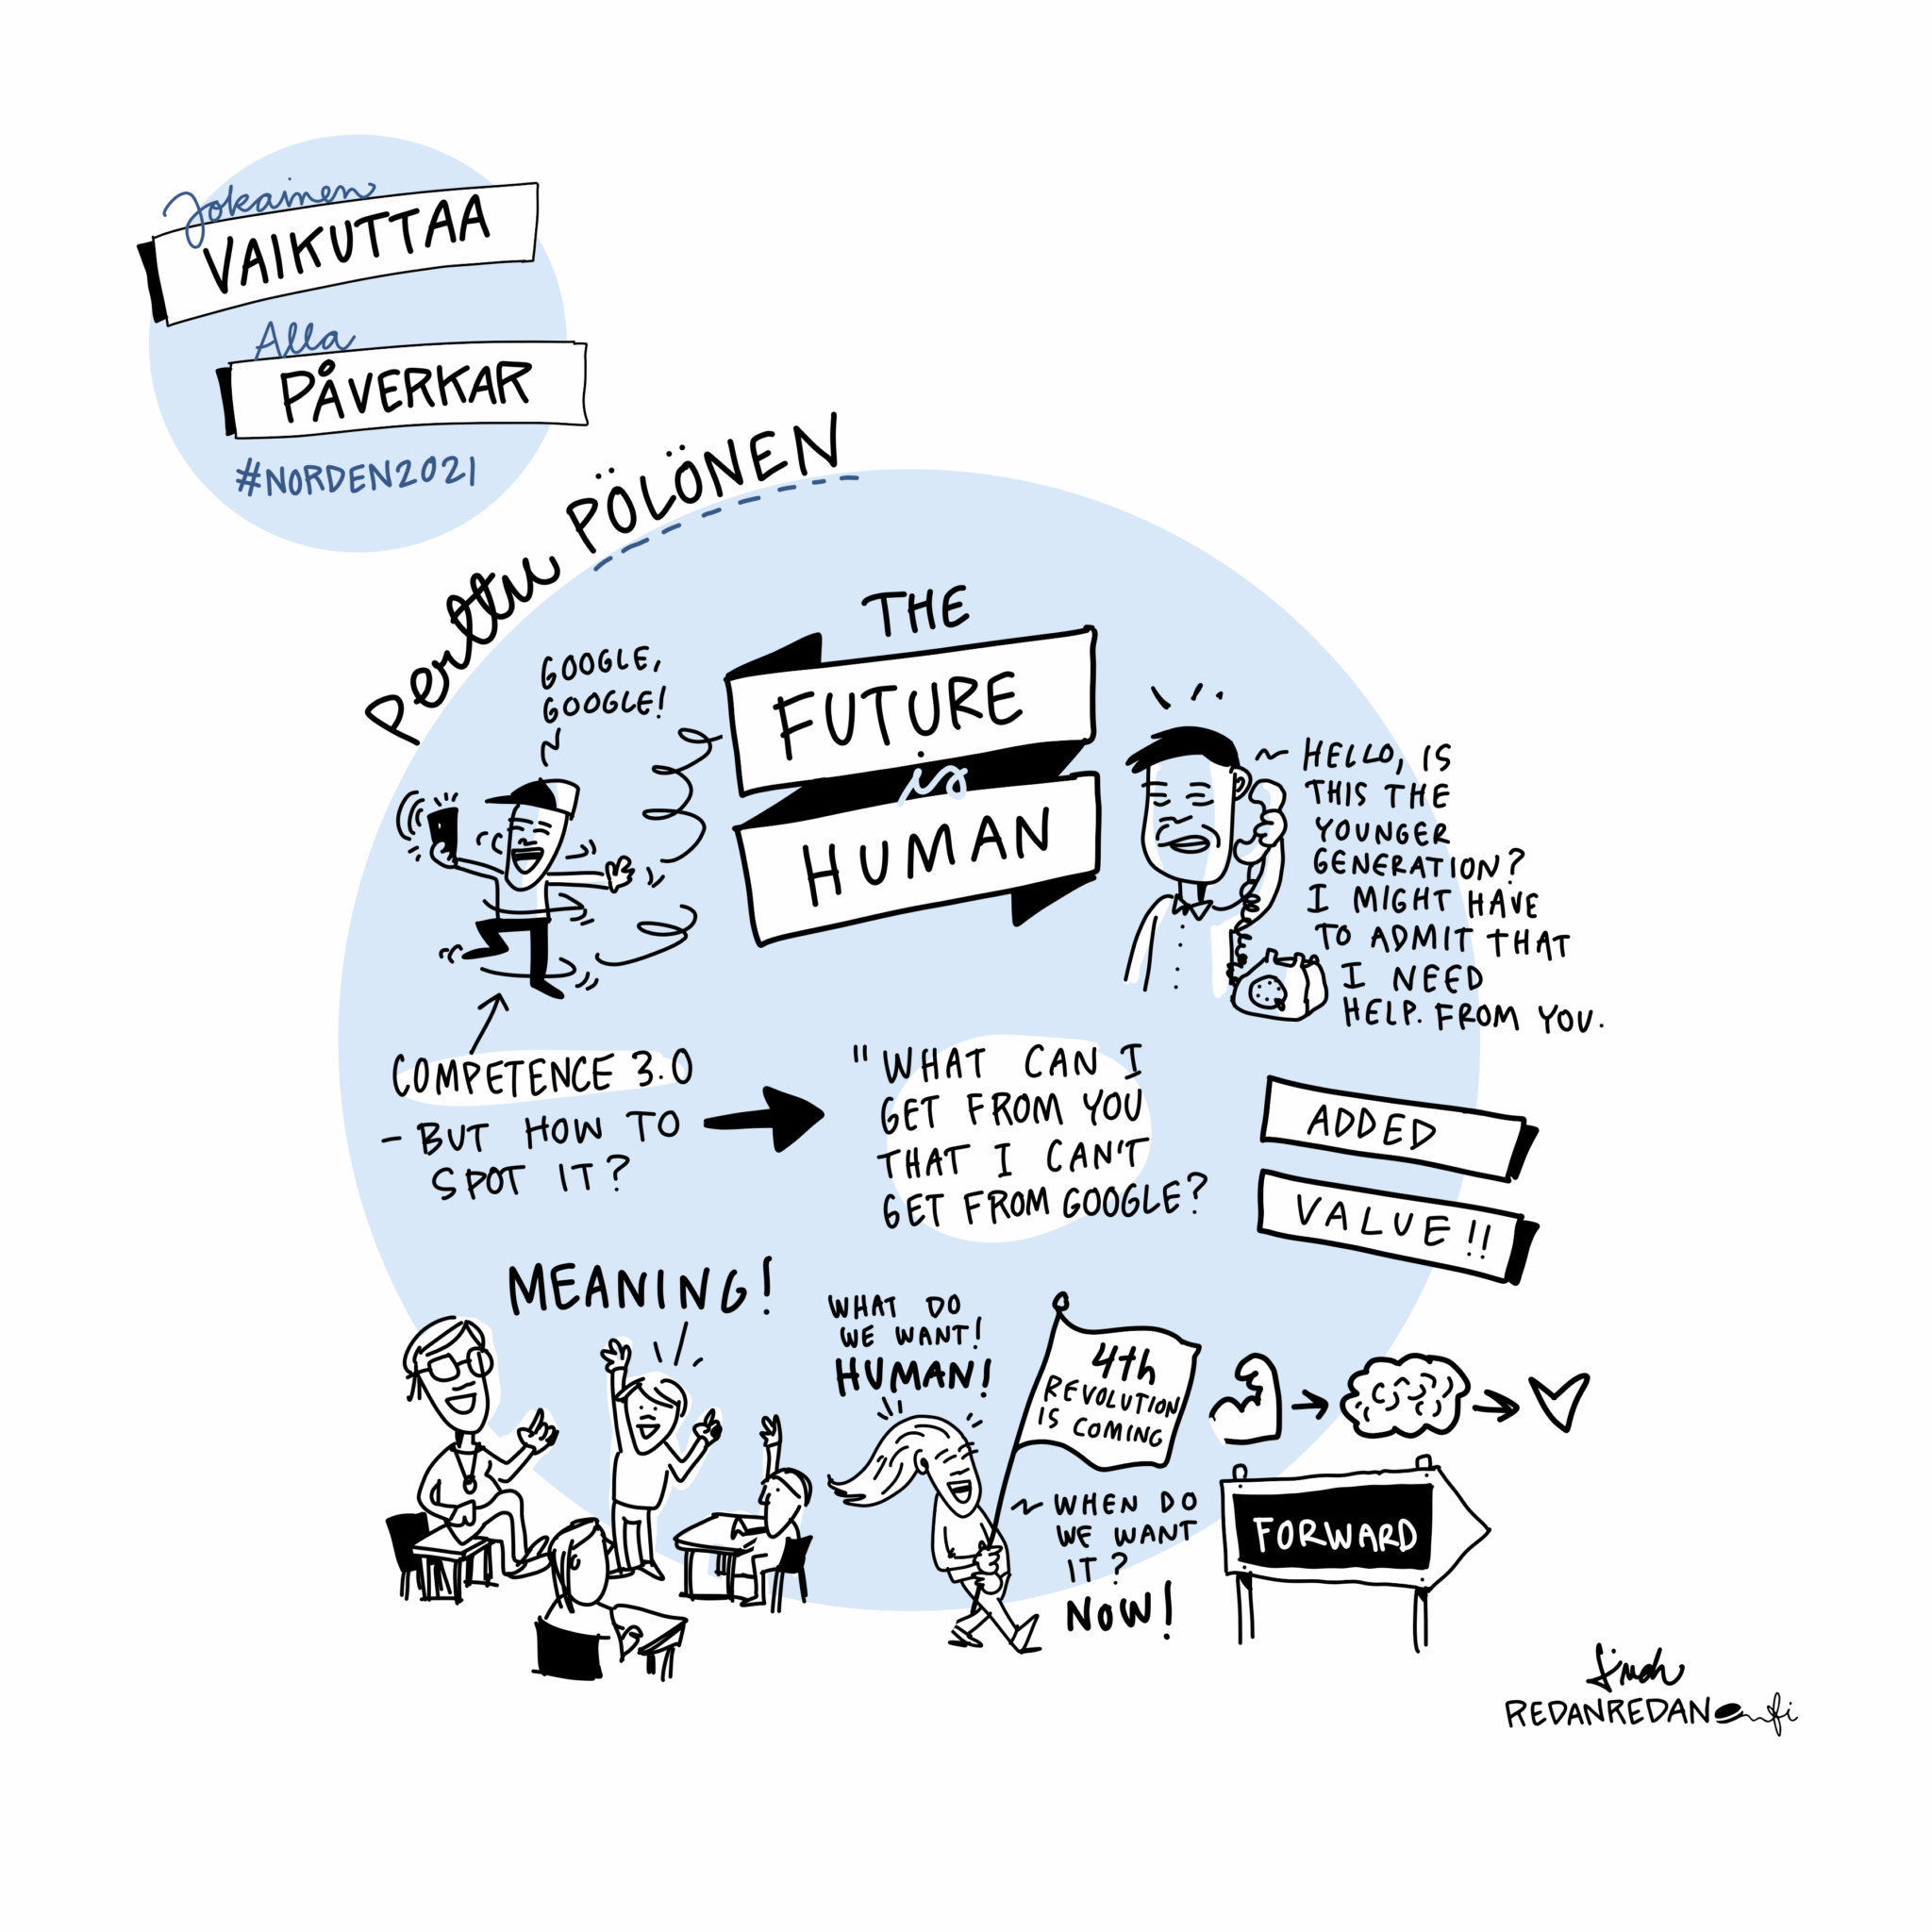 Jokainen
VAIKUTTAA
Alla
PÅVERKAR
#NORDEN2021
Perttu PÖLÖNEN
THE
FUTURE
is
HUMAN
GOOGLE,
GOOGLE!
HELLO, IS
THIS THE
YOUNGER
GENERATION?
I MIGHT HAVE
TO ADMIT THAT
I NEED
HELP. FROM YOU.
COMPETENCE 3.0
- BUT HOW TO
SPOT IT?
"WHAT CAN I
GET FROM YOU
THAT I CAN'T
GET FROM GOOGLE?
ADDED
VALUE!!
MEANING!
WHAT DO
WE WANT!
HUMAN!
4th
REVOLUTION
IS COMING
WHEN DO
WE WANT
IT?
NOW!
FORWARD
REDANREDAN.fi